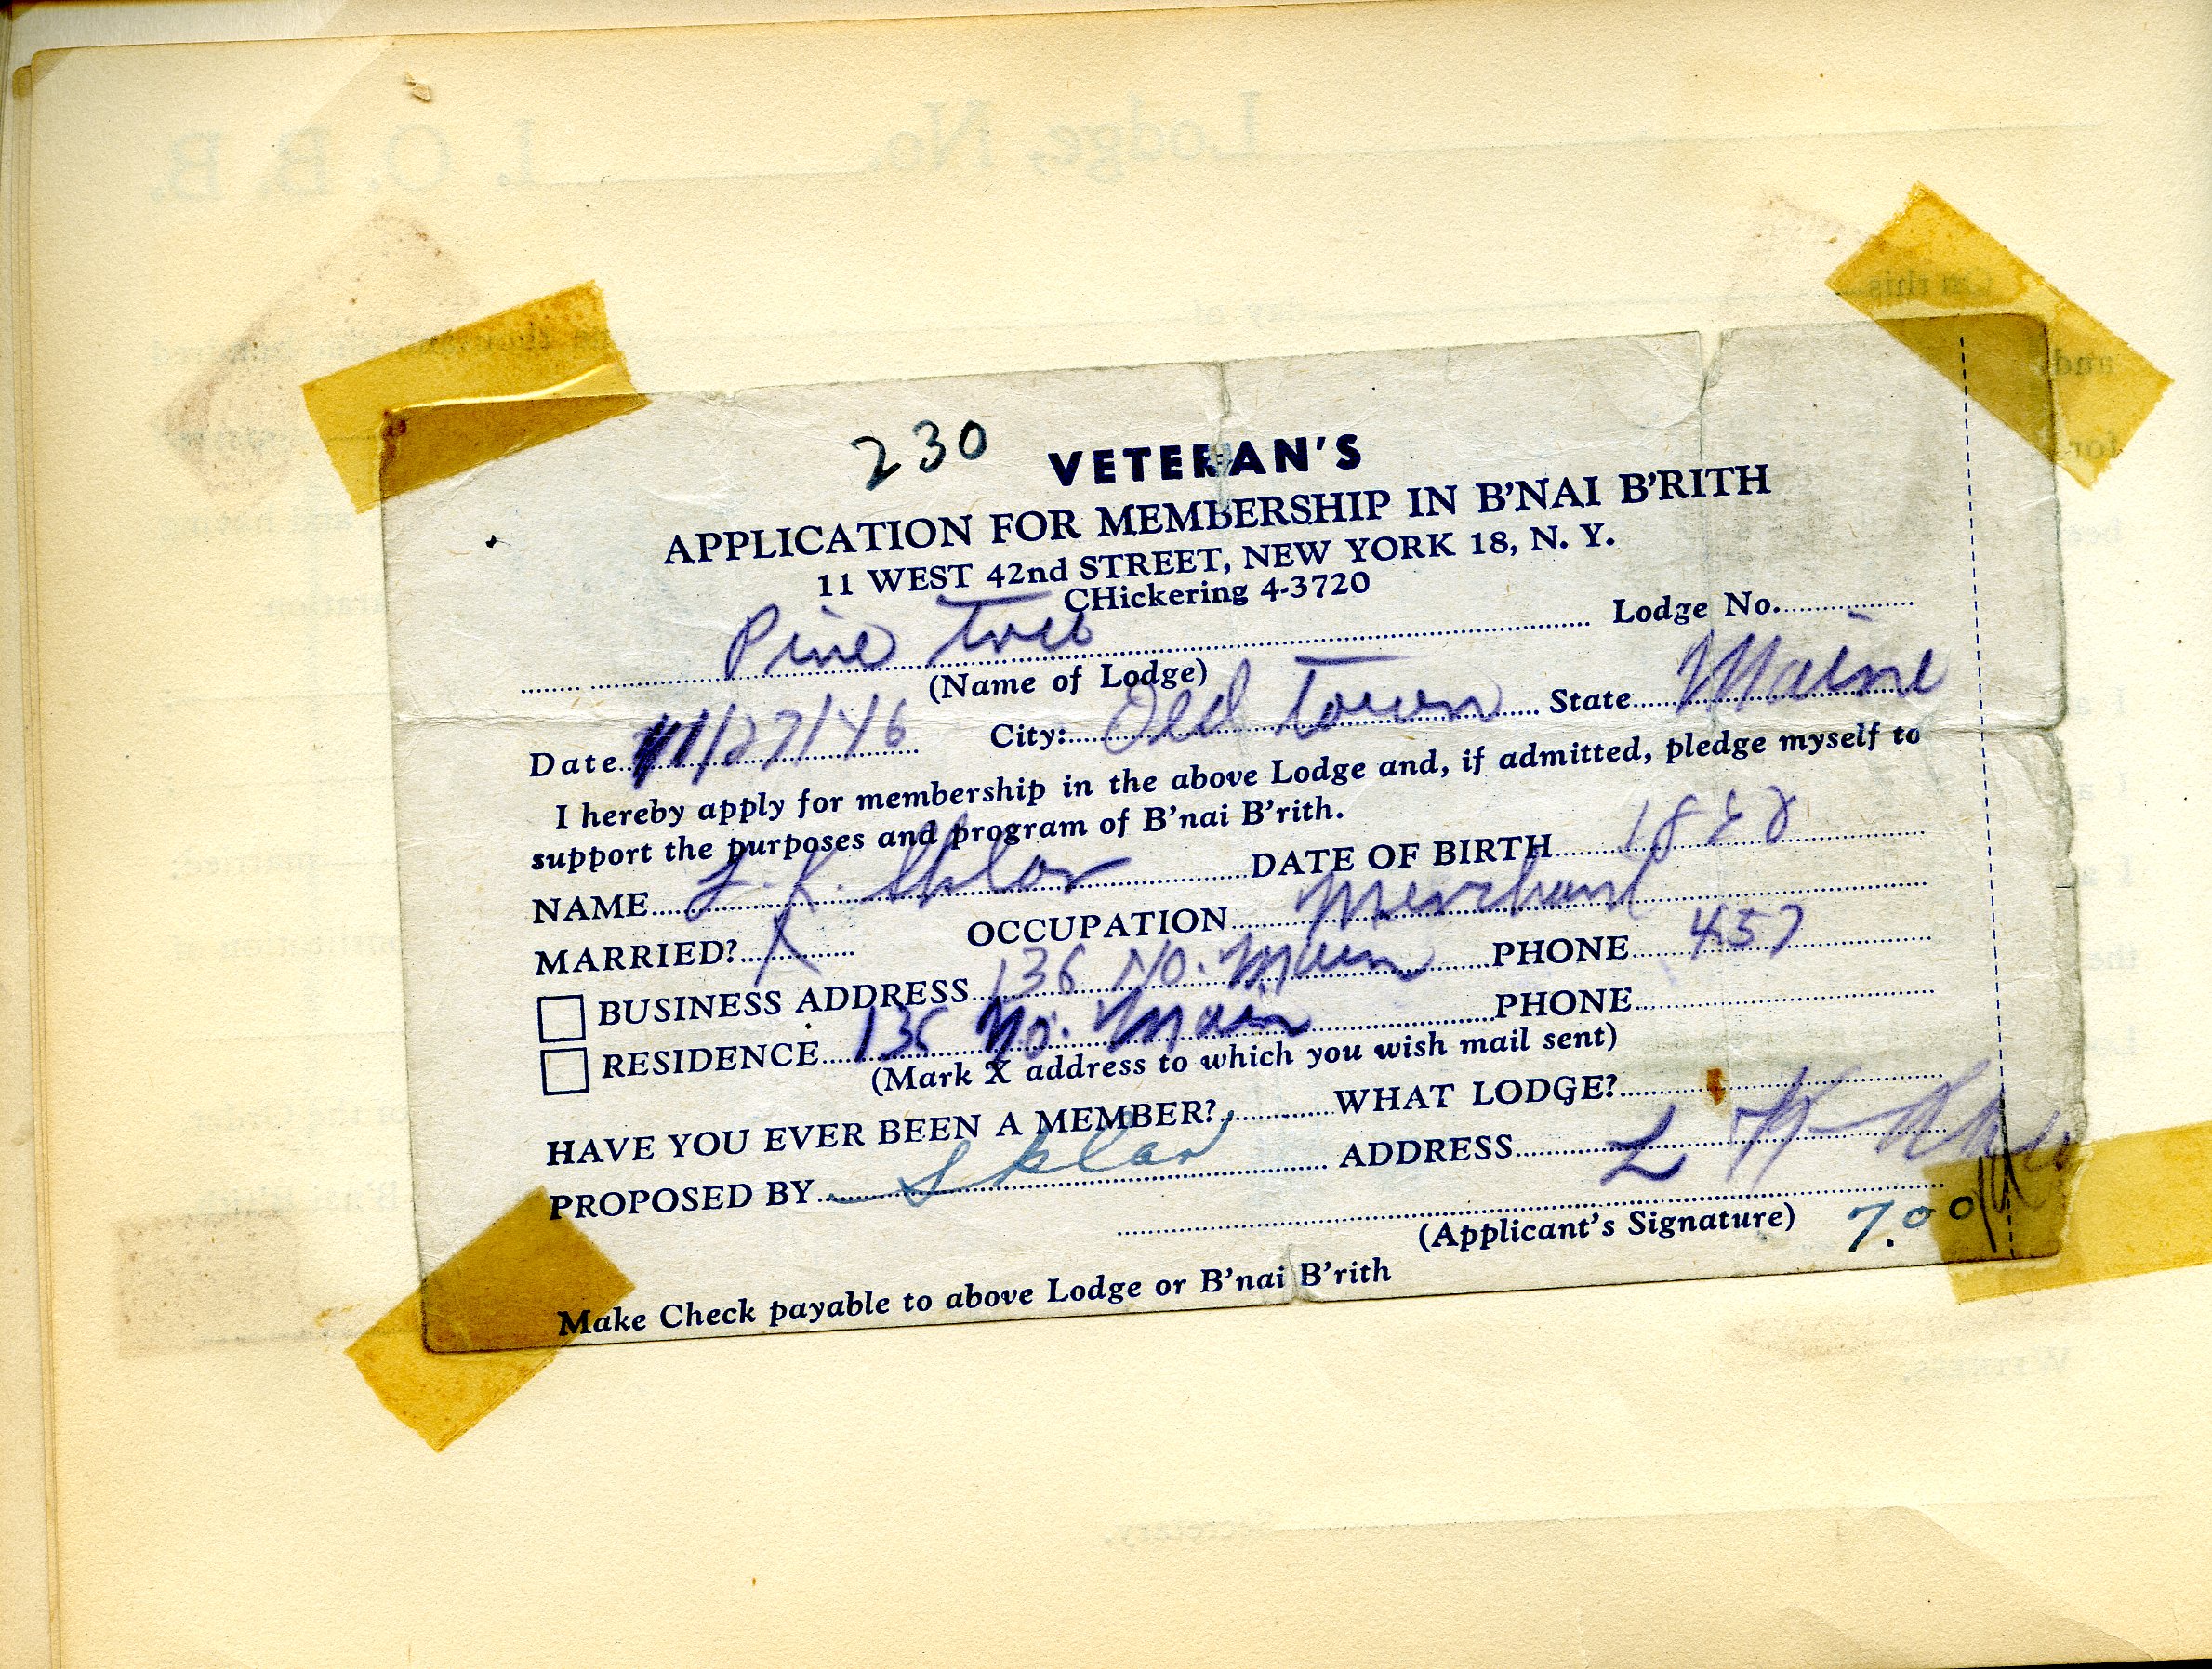 Lodge, No. I. O. B. B.
On this day of
and
for
230 VETERAN'S
APPLICATION FOR MEMBERSHIP IN B'NAI B'RITH
11 WEST 42nd STREET, NEW YORK 18, N. Y.
CHickering 4-3720
Pine Tree Lodge No.
(Name of Lodge)
Date 11/27/46 City: Old Town State Maine
I hereby apply for membership in the above Lodge and, if admitted, pledge myself to
support the purposes and program of B'nai B'rith.
NAME L. K. Sklar DATE OF BIRTH
MARRIED? X OCCUPATION Merchant
BUSINESS ADDRESS 136 No. Main PHONE 457
RESIDENCE 136 No. Main PHONE
(Mark X address to which you wish mail sent)
HAVE YOU EVER BEEN A MEMBER? WHAT LODGE?
PROPOSED BY Sklar ADDRESS
L K Sklar
(Applicant's Signature) 7.00
Make Check payable to above Lodge or B'nai B'rith
Witness.
Secretary.